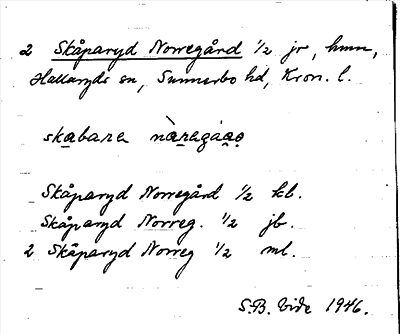 2 Skåparyd Norregård ½ jr, hmn,
Hallaryds sn, Sunnerbo hd, Kron. l.
skabara
Skåparyd Norregård ½ kb.
Skåparyd Norreg. ½ jb.
2 Skåparyd Norreg ½ ml.
S.B. Vide 1946.